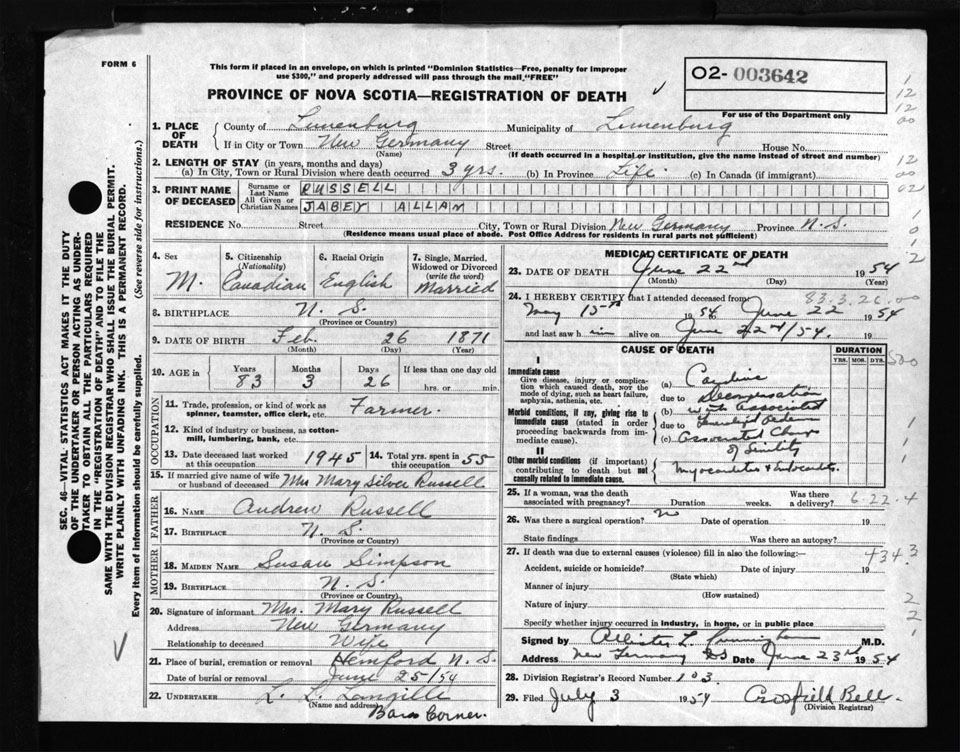 FORM 6
This form if placed in an envelope, on which is printed "Dominion Statistics—Free, penalty for improper
use $300," and properly addressed will pass through the mail "FREE"
O2- 003642
For use of the Department only
PROVINCE OF NOVA SCOTIA—REGISTRATION OF DEATH
1. PLACE OF DEATH
County of Lunenburg Municipality of Lunenburg
If in City or Town New Germany Street House No.
(Name) (If death occurred in a hospital or institution, give the name instead of street and number)
2. LENGTH OF STAY (in years, months and days)
(a) In City, Town or Rural Division where death occurred 3 yrs. (b) In Province Life (c) In Canada (if immigrant)
3. PRINT NAME OF DECEASED
Surname or Last Name RUSSELL
All Given or Christian Names JABEY ALLAN
RESIDENCE No. Street City, Town or Rural Division New Germany Province N.S.
(Residence means usual place of abode. Post Office Address for residents in rural parts not sufficient)
4. Sex M.
5. Citizenship (Nationality) Canadian
6. Racial Origin English
7. Single, Married, Widowed or Divorced (write the word) Married
8. BIRTHPLACE N. S.
(Province or Country)
9. DATE OF BIRTH Feb. 26 1871
(Month) (Day) (Year)
10. AGE in Years Months Days If less than one day old
83 3 26 hrs. or min.
OCCUPATION
11. Trade, profession, or kind of work as spinner, teamster, office clerk, etc. Farmer.
12. Kind of industry or business, as cotton-mill, lumbering, bank, etc.
13. Date deceased last worked at this occupation 1945
14. Total yrs. spent in this occupation 55
15. If married give name of wife or husband of deceased Mrs Mary Silver Russell
FATHER
16. NAME Andrew Russell
17. BIRTHPLACE N. S.
(Province or Country)
MOTHER
18. MAIDEN NAME Susan Simpson
19. BIRTHPLACE N. S.
(Province or Country)
20. Signature of informant Mrs. Mary Russell
Address New Germany
Relationship to deceased Wife
21. Place of burial, cremation or removal Hemford N. S.
Date of burial or removal June 25/54
22. UNDERTAKER L. L. Langille
(Name and address)
Barss Corner.
MEDICAL CERTIFICATE OF DEATH
23. DATE OF DEATH June 22nd 1954
(Month) (Day) (Year)
83.3.26.00
24. I HEREBY CERTIFY that I attended deceased from:
May 15th 1954 June 22 1954
and last saw him alive on June 22nd/54.
CAUSE OF DEATH
DURATION
YRS. MOS. DYS.
I
Immediate cause
Give disease, injury or complication which caused death, not the mode of dying, such as heart failure, asphyxia, asthenia, etc.
(a) Cardiac
due to Decompensation
Morbid conditions, if any, giving rise to immediate cause (stated in order proceeding backwards from immediate cause).
(b) with associated
due to
(c)
of Senility
II
Other morbid conditions (if important) contributing to death but not causally related to immediate cause.
25. If a woman, was the death associated with pregnancy? Duration weeks. Was there a delivery?
6.22.4
26. Was there a surgical operation? no Date of operation 19
State findings Was there an autopsy?
27. If death was due to external causes (violence) fill in also the following:—
4343
Accident, suicide or homicide? Date of injury 19
(State which)
Manner of injury
(How sustained)
Nature of injury
Specify whether injury occurred in industry, in home, or in public place
Signed by Allister L. Cunningham M.D.
Address New Germany NS Date June 23rd 1954
28. Division Registrar's Record Number 103.
29. Filed July 3 1954 Crosfield Bell.
(Division Registrar)
SEC. 46—VITAL STATISTICS ACT MAKES IT THE DUTY
OF THE UNDERTAKER OR PERSON ACTING AS UNDER-
TAKER TO OBTAIN ALL THE PARTICULARS REQUIRED
IN THE "REGISTRATION OF DEATH" AND TO FILE THE
SAME WITH THE DIVISION REGISTRAR WHO SHALL ISSUE THE BURIAL PERMIT.
WRITE PLAINLY WITH UNFADING INK. THIS IS A PERMANENT RECORD.
Every item of information should be carefully supplied. (See reverse side for instructions.)